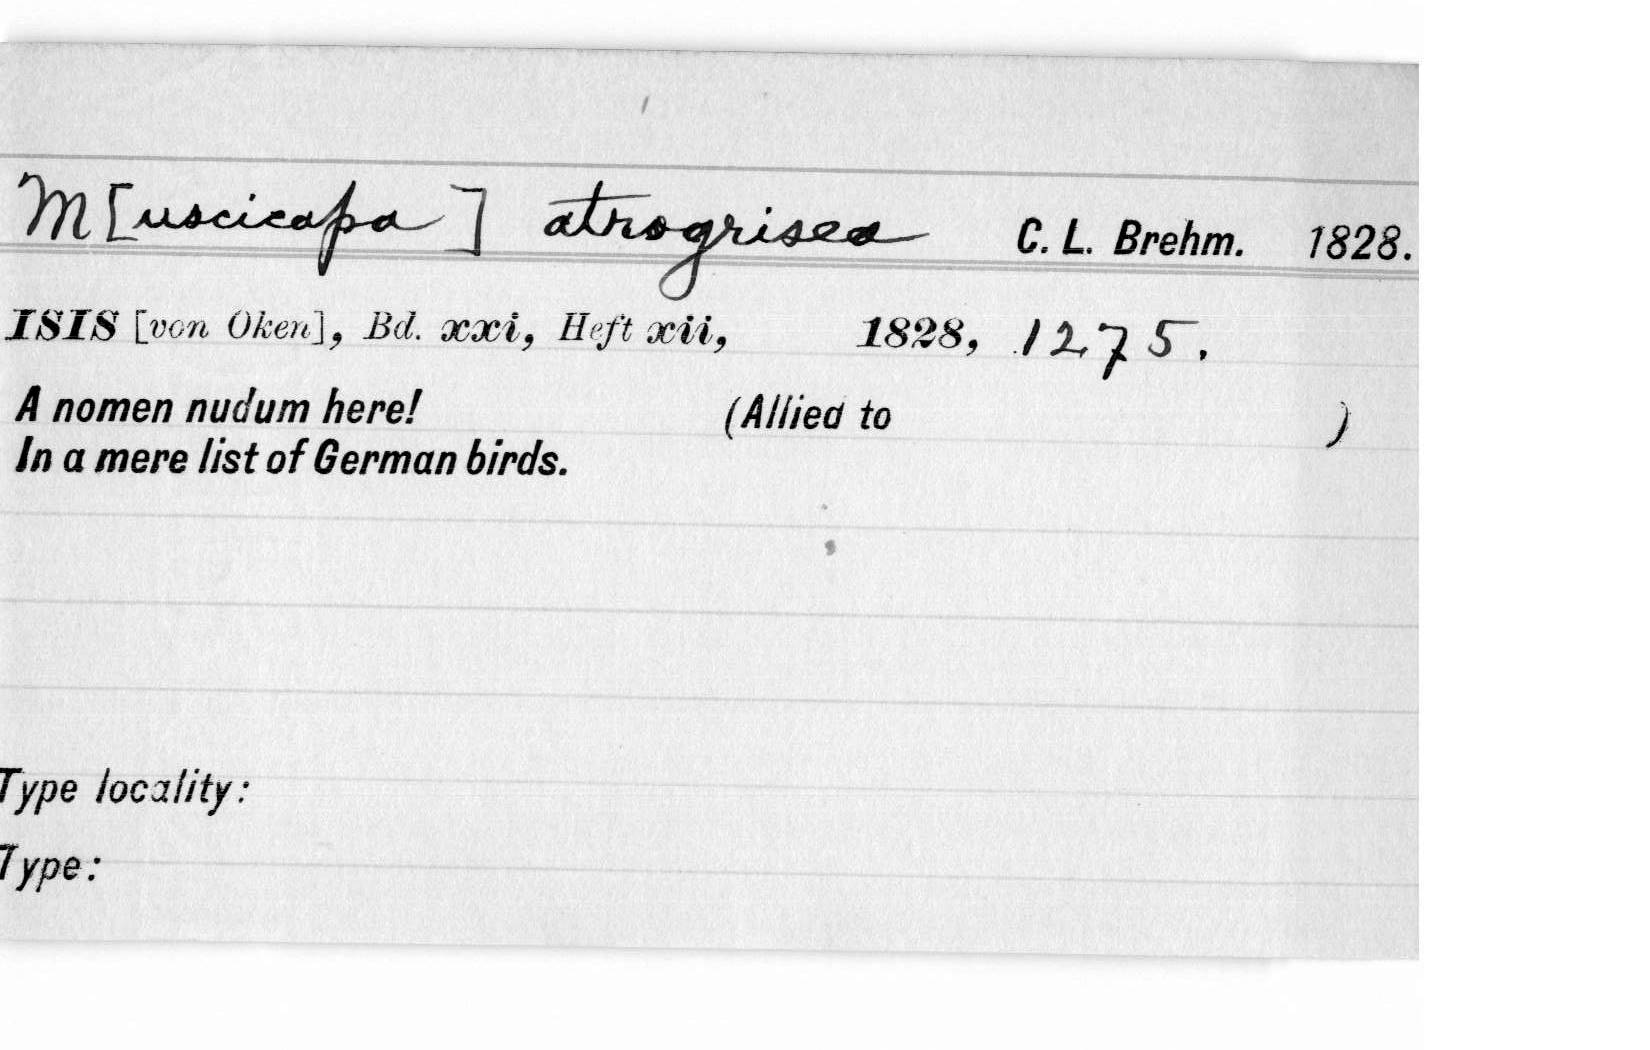 M[uscicapa] atrogrisea C. L. Brehm. 1828.
ISIS [von Oken], Bd. xxi, Heft xii, 1828, 1275.
A nomen nudum here! (Allied to )
In a mere list of German birds.
Type locality:
Type: